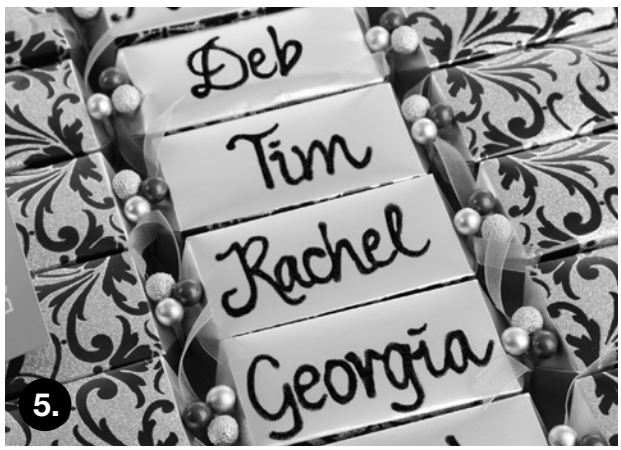 Deb
Tim
Rachel
Georgia
5.